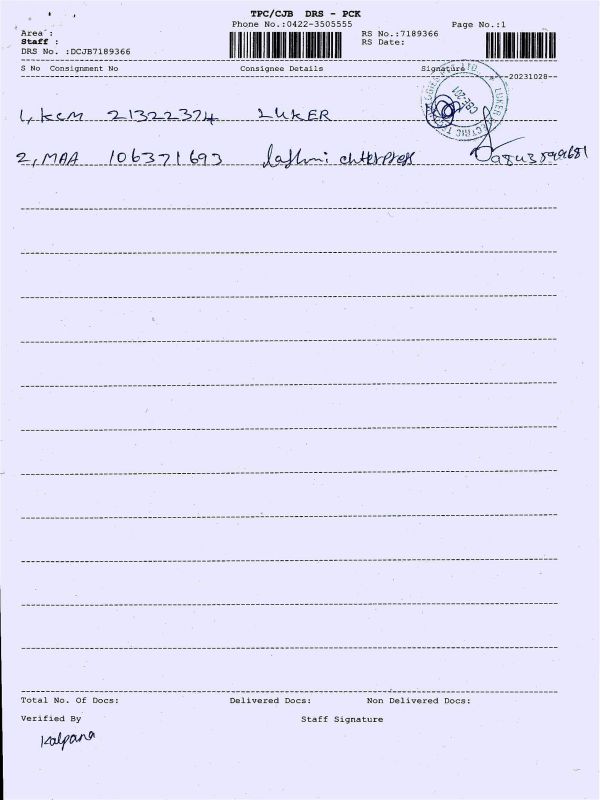 TPC/CJB DRS - PCK
Phone No.:0422-3505555 Page No.:1
Area :
Staff : RS No.:7189366
DRS No. :DCJB7189366 RS Date:
S No Consignment No Consignee Details Signature
20231028
1, KCM 21322374 LUKER
2, MAA 106371693
Total No. Of Docs: Delivered Docs: Non Delivered Docs:
Verified By Staff Signature
Kalpana